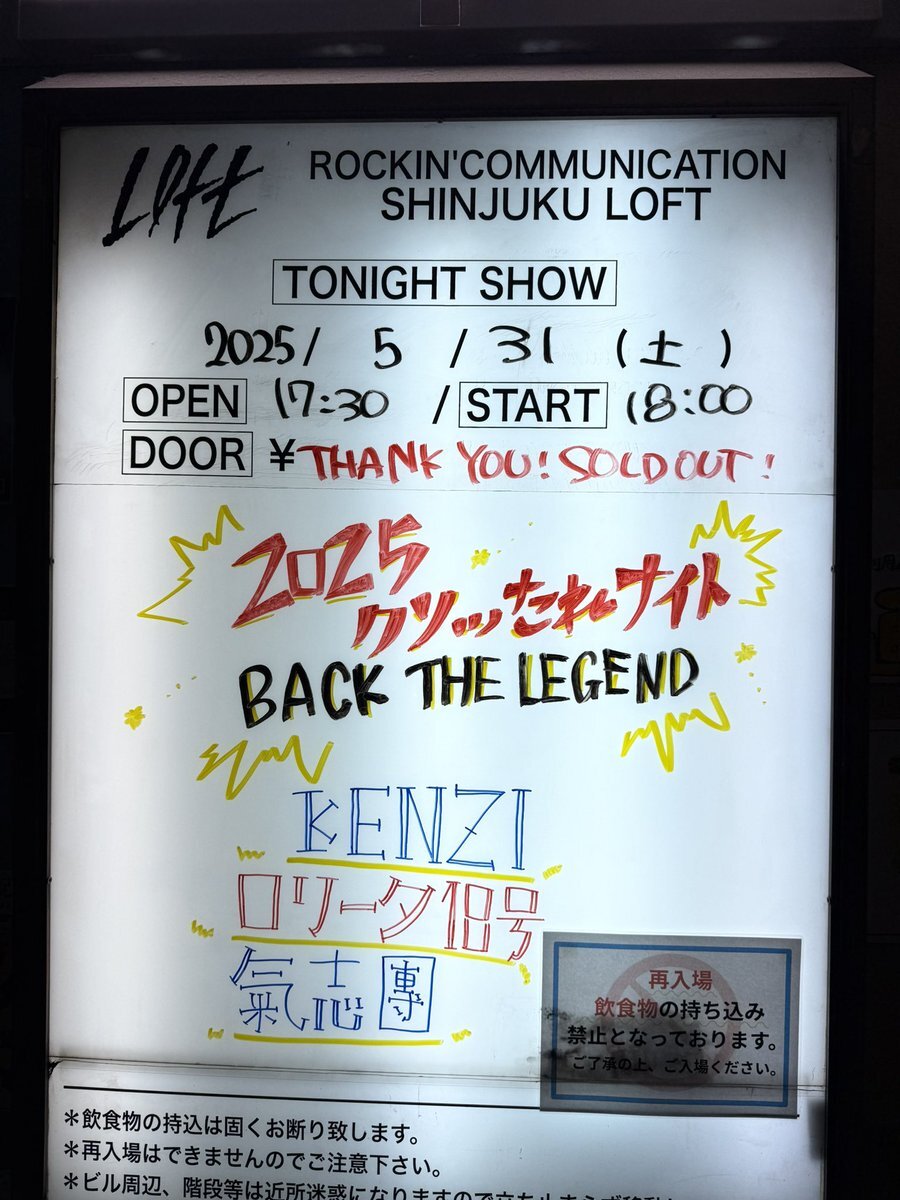 LOFT
ROCKIN'COMMUNICATION
SHINJUKU LOFT
TONIGHT SHOW
2025/ 5 /31 (土)
OPEN 17:30 /START 18:00
DOOR ¥THANK YOU! SOLD OUT!
2025
クソッたれナイト
BACK THE LEGEND
KENZI
ロリータ18号
氣志團
再入場
飲食物の持ち込み
禁止となっております。
ご了承の上、ご入場ください。
＊飲食物の持込は固くお断り致します。
＊再入場はできませんのでご注意下さい。
＊ビル周辺、階段等は近所迷惑になりますので立ち止まらず移動